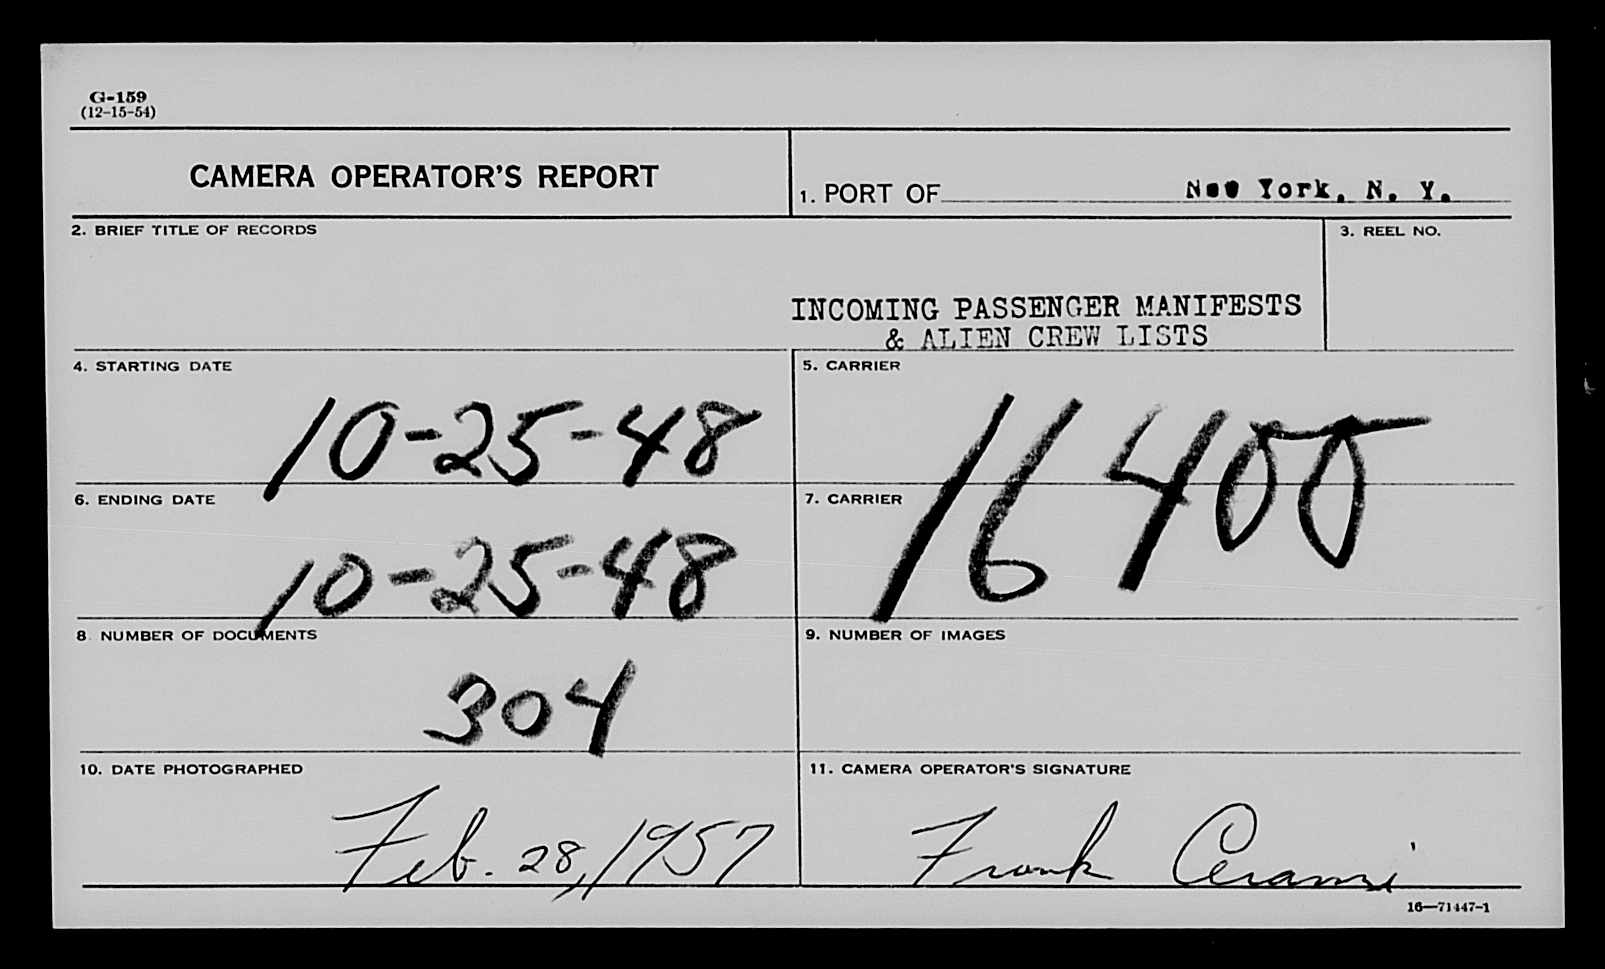 G-159
(12-15-54)
CAMERA OPERATOR'S REPORT
1. PORT OF New York, N. Y.
2. BRIEF TITLE OF RECORDS
3. REEL NO.
INCOMING PASSENGER MANIFESTS
& ALIEN CREW LISTS
4. STARTING DATE
10-25-48
5. CARRIER
16400
6. ENDING DATE
10-25-48
7. CARRIER
8. NUMBER OF DOCUMENTS
304
9. NUMBER OF IMAGES
10. DATE PHOTOGRAPHED
Feb. 28, 1957
11. CAMERA OPERATOR'S SIGNATURE
Frank Cerami
16—71447-1